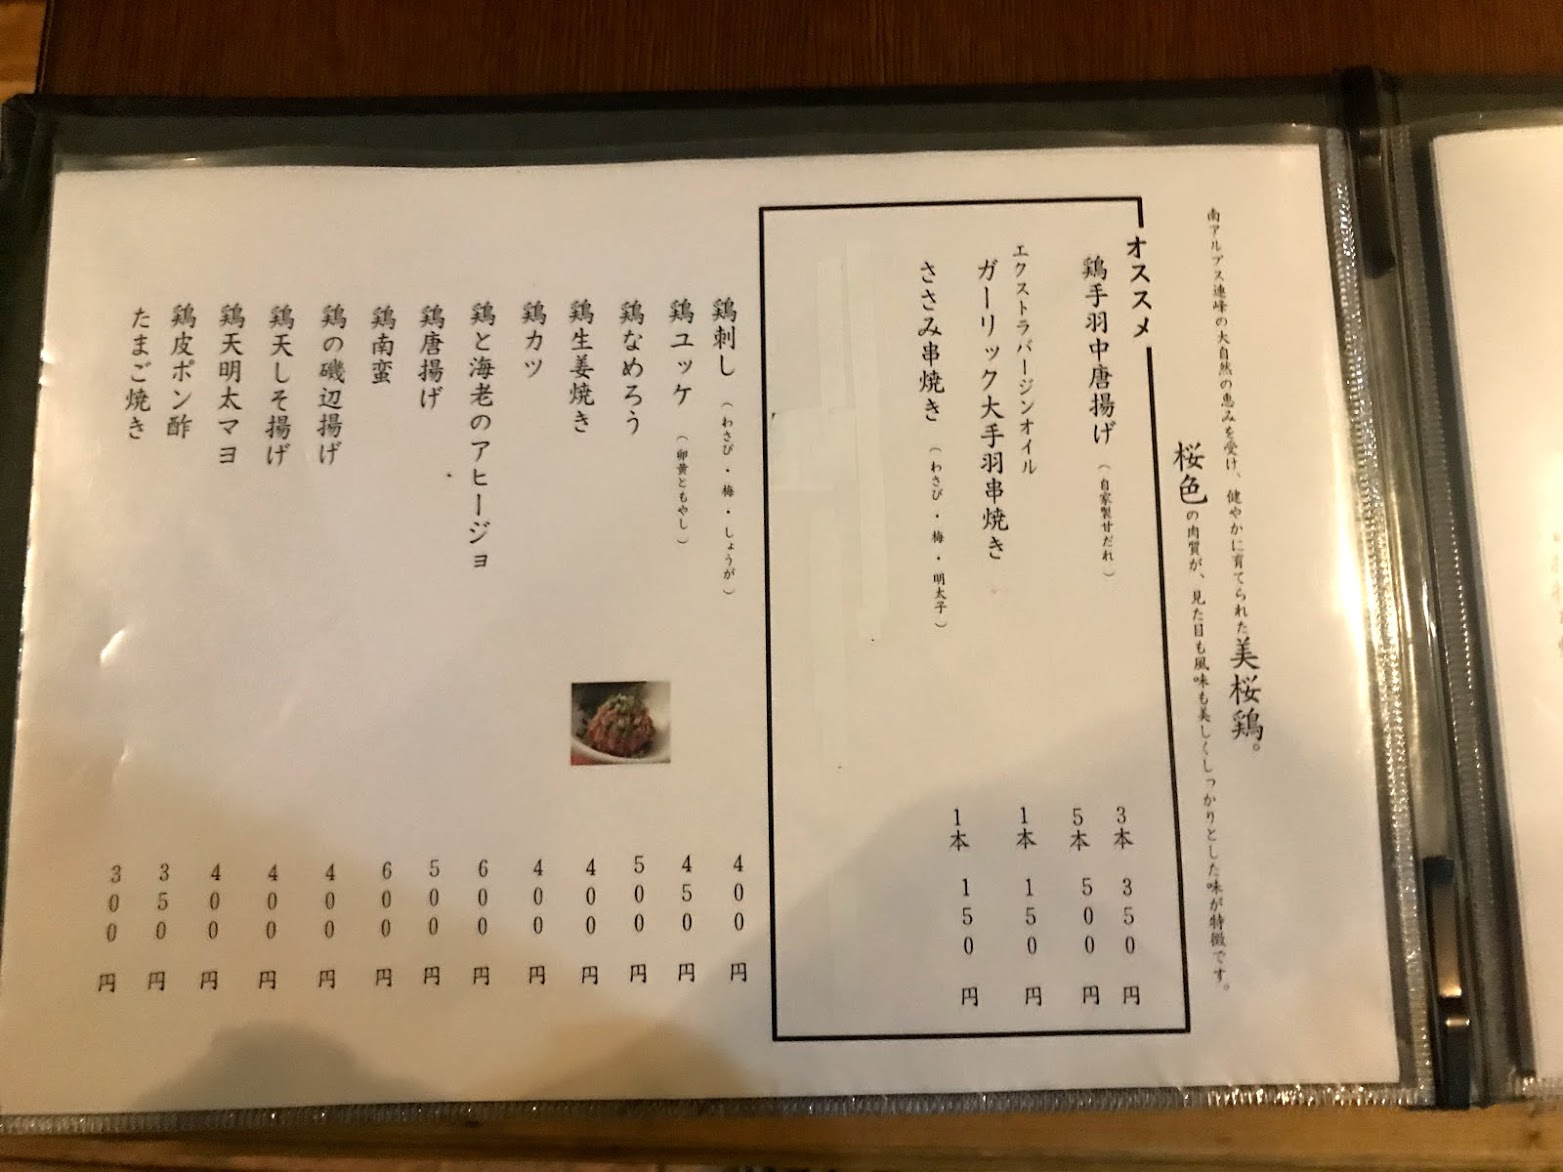 南アルプス連峰の大自然の恵みを受け、健やかに育てられた美桜鶏。
桜色の肉質が、見た目も風味も美しくしっかりとした味が特徴です。
オススメ
鶏手羽中唐揚げ（自家製甘だれ） 3本 350円
5本 500円
エクストラバージンオイル
ガーリック大手羽串焼き 1本 150円
ささみ串焼き（わさび・梅・明太子） 1本 150円
鶏刺し（わさび・梅・しょうが） 400円
鶏ユッケ（卵黄ともやし） 450円
鶏なめろう 500円
鶏生姜焼き 400円
鶏カツ 400円
鶏と海老のアヒージョ 600円
鶏唐揚げ 500円
鶏南蛮 600円
鶏の磯辺揚げ 400円
鶏天しそ揚げ 400円
鶏天明太マヨ 400円
鶏皮ポン酢 350円
たまご焼き 300円